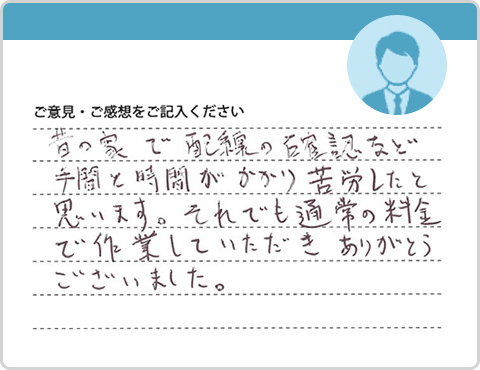 ご意見・ご感想をご記入ください
昔の家で配線の確認など
手間と時間がかかり苦労したと
思います。それでも通常の料金
で作業していただきありがとう
ございました。